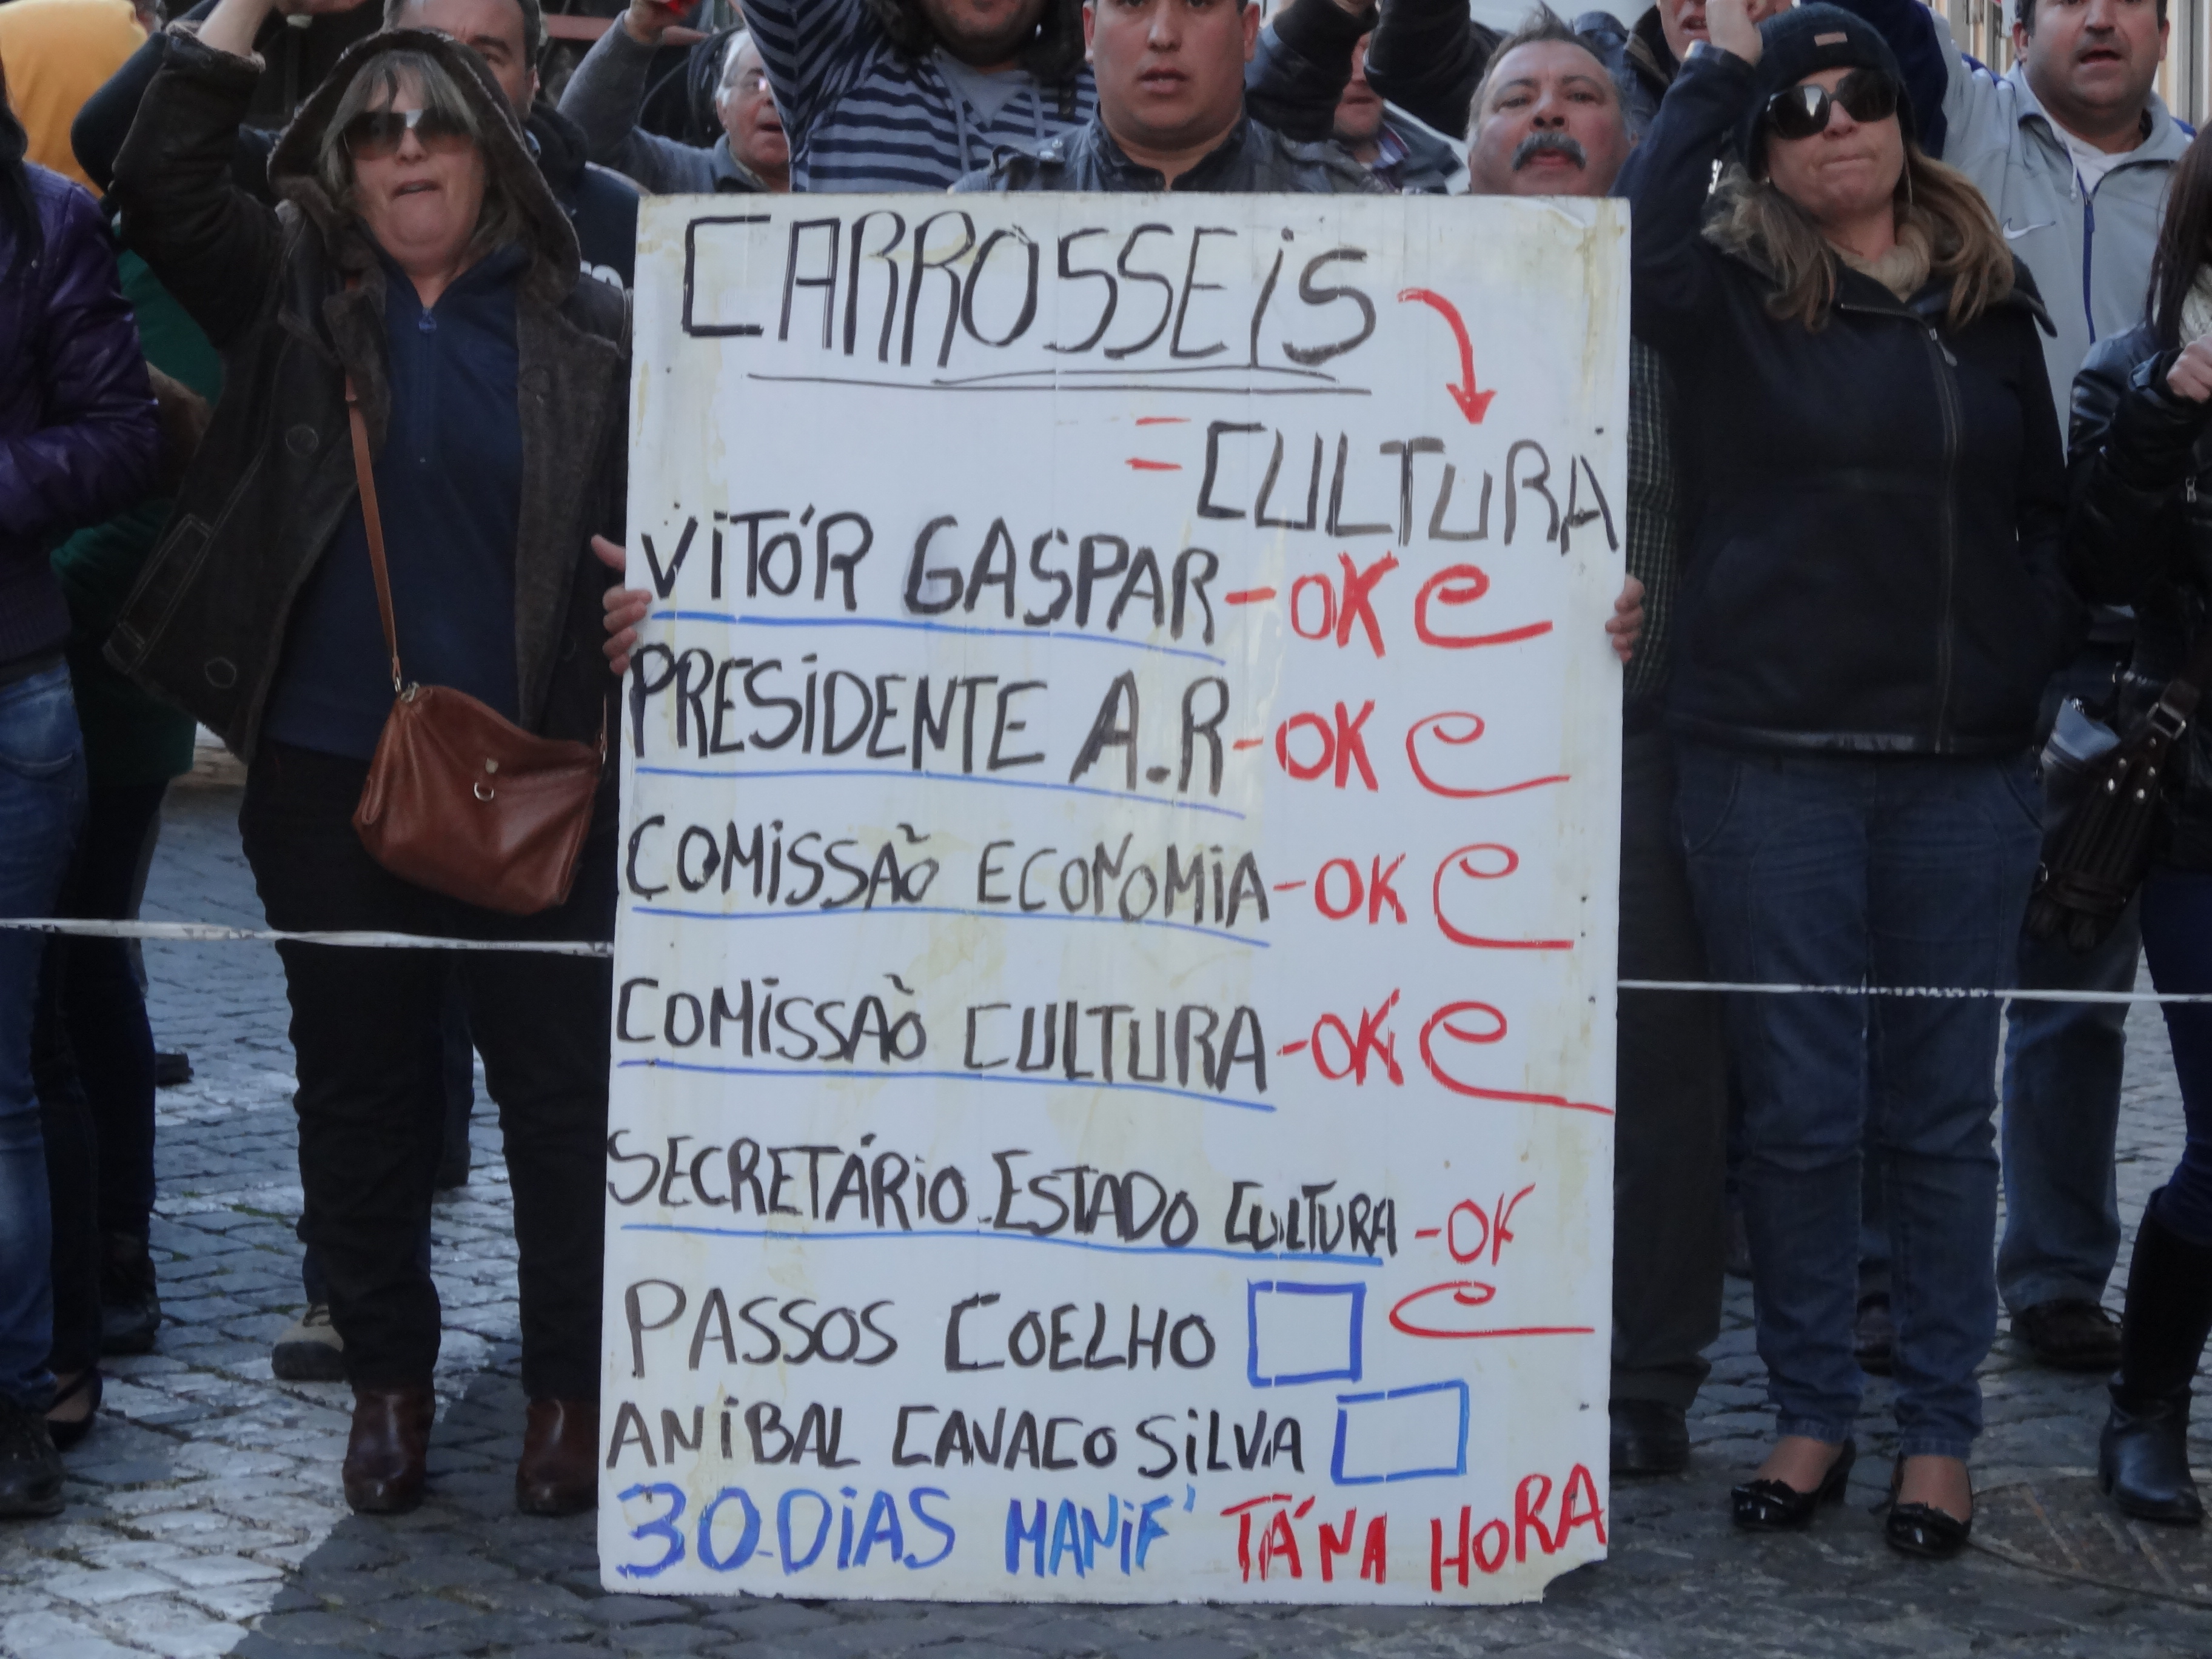 CARROSSEiS
= CULTURA
ViTÓR GASPAR - OK
PRESiDENTE A.R - OK
COMiSSÃO ECONOMiA - OK
COMiSSÃO CULTURA - OK
SECRETÁRiO ESTADO CULTURA - OK
PASSOS COELHO
ANiBAL CAVACO SiLVA
30 DiAS MANiF' TÁ NA HORA